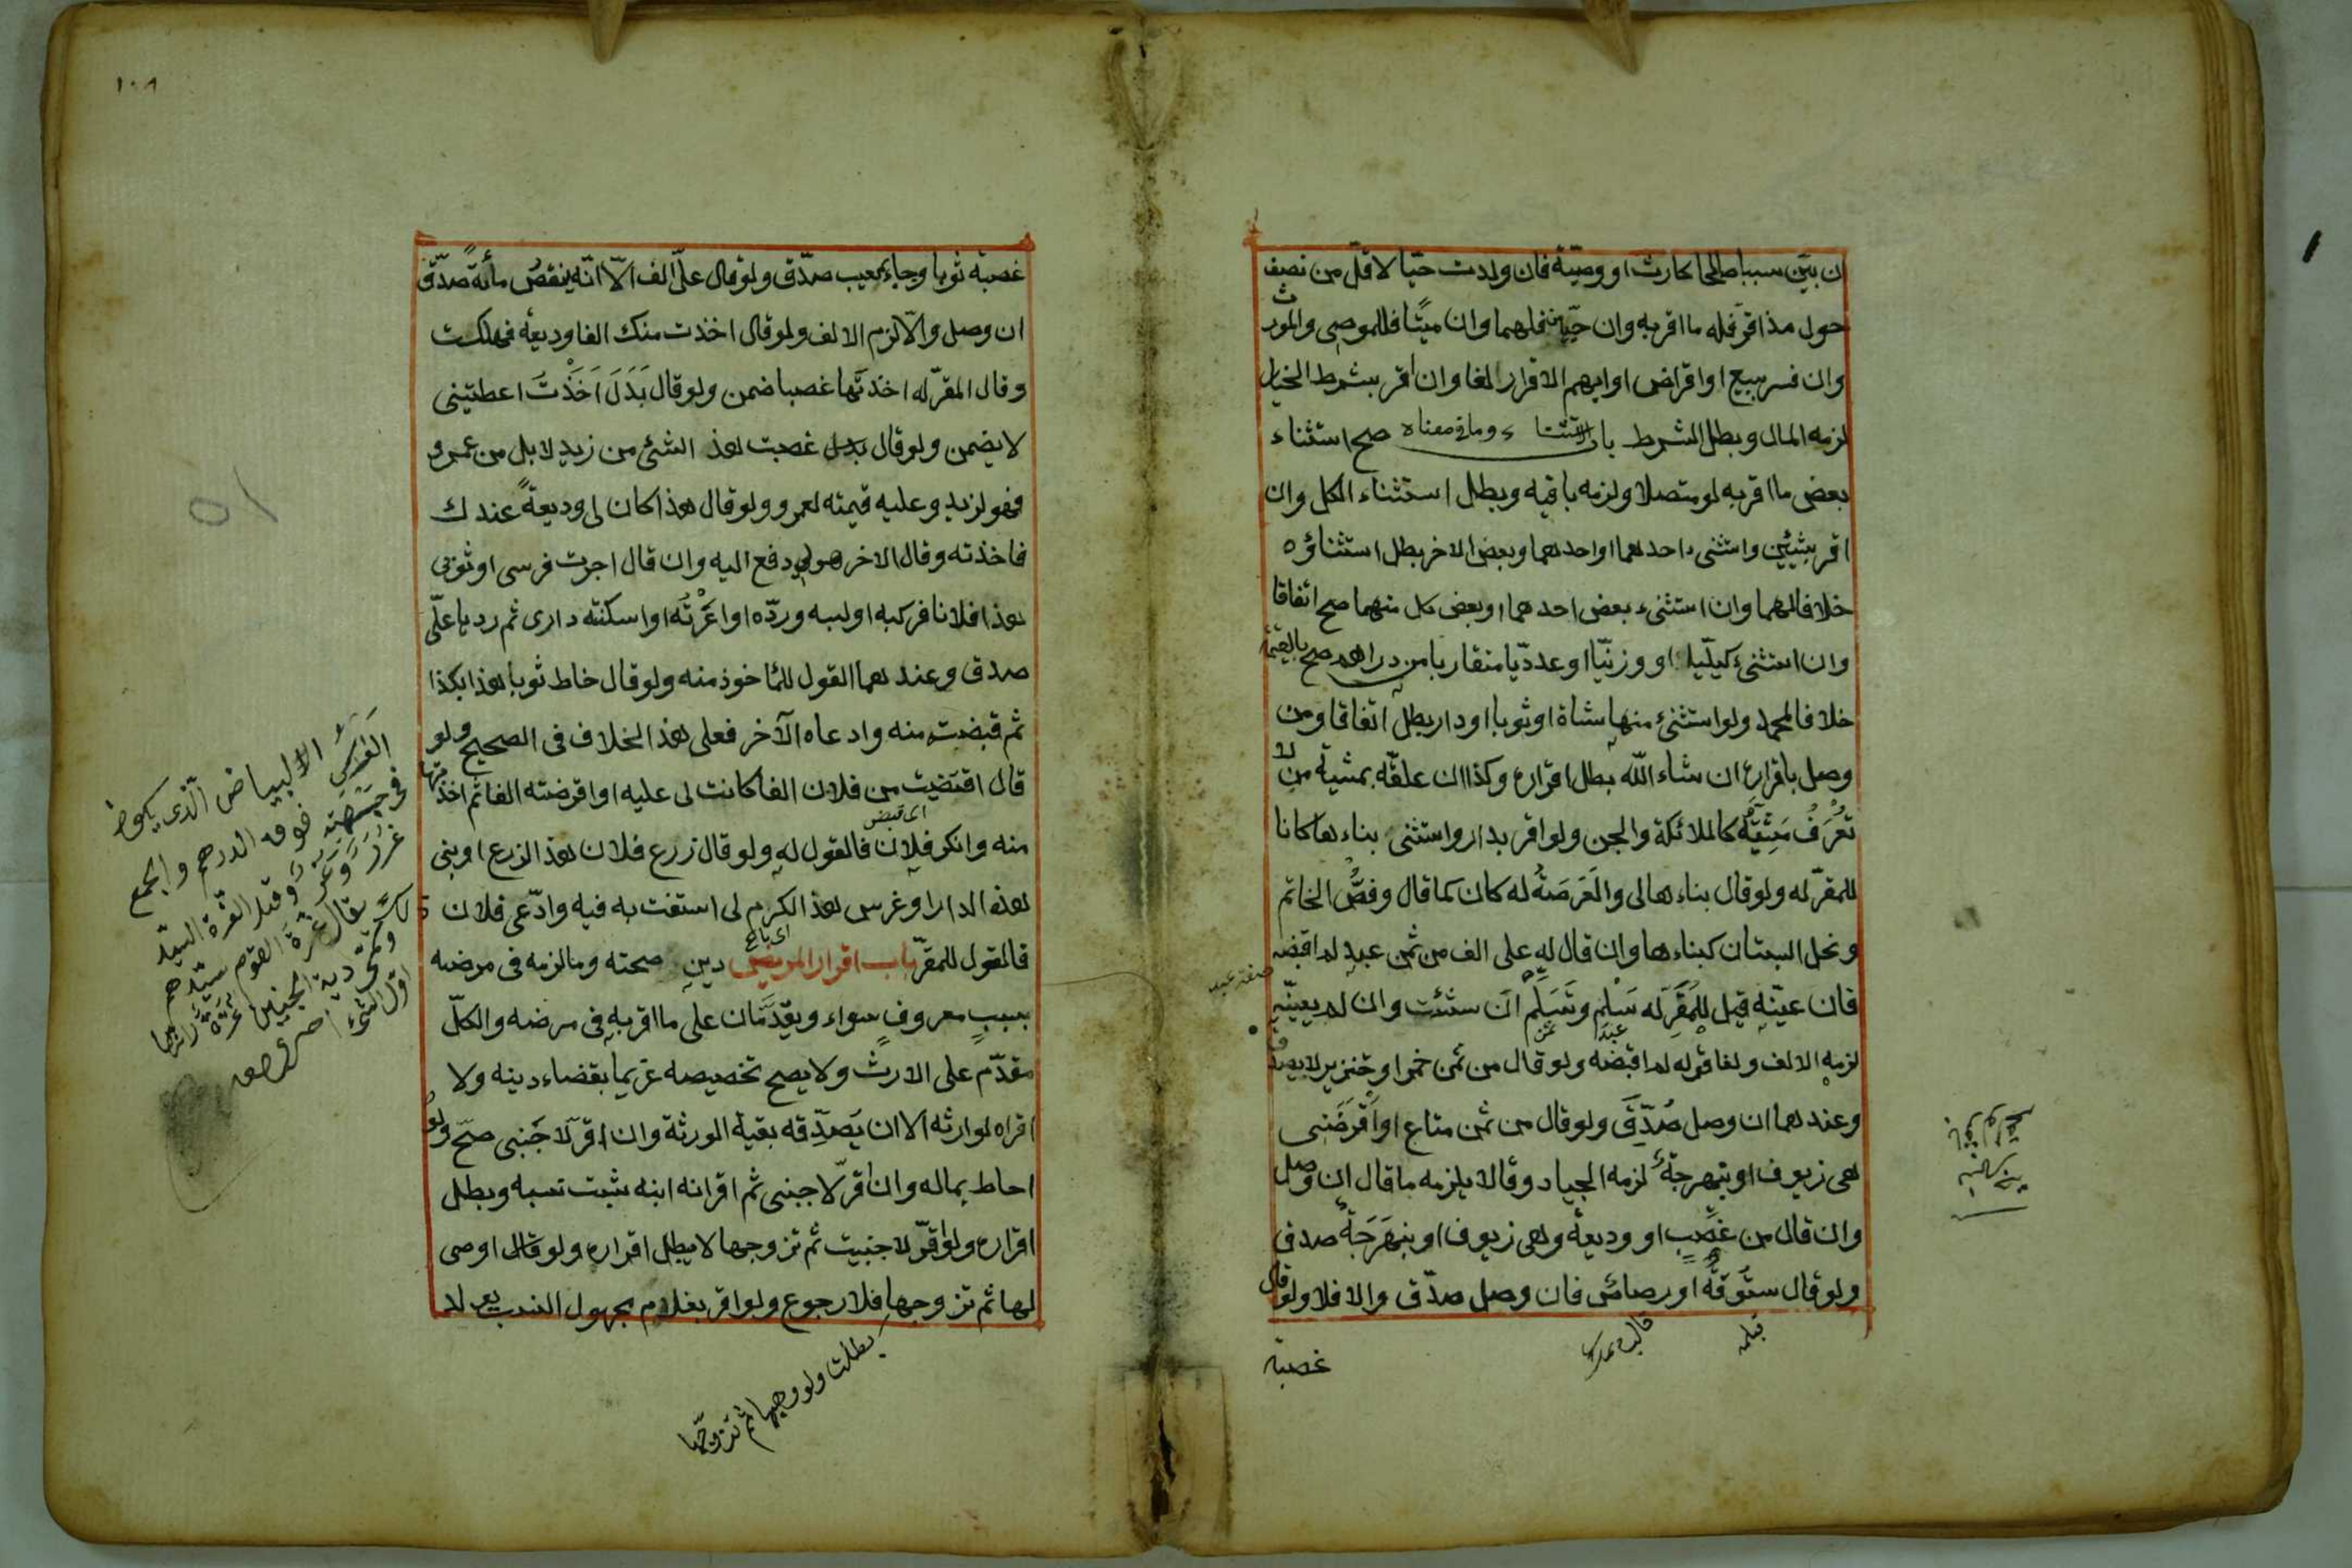 ان بيّن سببا صالحا كارث او وصيّة فان ولدت حيّا لاقلّ من نصف
حول مذ اقرّ فله ما اقر به وان حيّين فلهما وان ميتًا فللموصى والمورث
وان فسر ببيع او اقراض او ابهم الاقرار لغا وان اقر بشرط الخيار
لزمه المال وبطل الشرط باب الاستثناء وما فى معناه صح استثناء
بعض ما اقر به لو متصلا ولزمه باقيه وبطل استثناء الكل وان
اقر بشيئين واستثنى احدهما او احدهما وبعض الاخر بطل استثناؤه
خلافا لهما وان استثنى بعض احدهما او بعض كل منهما صح اتفاقا
وان استثنى كيليّا او وزنيّا او عدديّا متقاربا من دراهم صح بالقيمة
خلافا لمحمد ولو استثنى منها شاة او ثوبا او دارا بطل اتفاقا ومن
وصل باقراره ان شاء الله بطل اقراره وكذا ان علقه بمشية من لا
تُعْرَفُ مَشِيَّتُهُ كالملائكة والجن ولو اقر بدار واستثنى بناءها كانا
للمقرّ له ولو قال بناءها لى والعَرَصَةُ له كان كما قال وفصُّ الخاتم
ونخل البستان كبناءها وان قال له على الف من ثمن عبد لم اقبضه
فان عيّنه قيل للمُقَرِّ له سَلِّم وتَسَلَّم ان شئت وان لم يعيّنه
لزمه الالف ولغا قوله لم اقبضه ولو قال من ثمن خمر او خنزير لا يصدق
وعندهما ان وصل صُدِّقَ ولو قال من ثمن متاع او اَقْرَضَنى
هى زيوف او بنهرجة لزمه الجياد وقالا يلزمه ما قال ان وصل
وان قال من غصب او وديعة وهى زيوف او بنهرَجَة صدق
ولو قال ستُّوقة او رصاص فان وصل صدّق والا فلا ولو قال
غصبة
١٠٨
غصبة ثوبا وجاء بمعيب صدّق ولو قال علىّ الف الّا انّه ينقص مائة صدّق
ان وصل والّا لزم الالف ولو قال اخذت منك الفا وديعة فهلكت
وقال المقرّ له اخذتها غصبا ضمن ولو قال بَدَلَ اَخَذْتَ اعطيتنى
لا يضمن ولو قال بدل غصبت هذ الشئ من زيد لا بل من عمرو
فهو لزيد وعليه قيمته لعمرو ولو قال هذا كان لى وديعةً عندك
فاخذته وقال الاخر هو لى دفع اليه وان قال اجرت فرسى او ثوبى
هذا فلانا فركبه او لبسه وردّه او اعَرْتُه او اسكنته دارى ثم ردها علىّ
صدق وعندهما القول للمأخوذ منه ولو قال خاط ثوبا هذا بكذا
ثم قبضت منه وادعاه الآخر فعلى هذ الخلاف فى الصحيح ولو
قال اقتضيت من فلان الفا كانت لى عليه او اقرضته الفا ثم اخذتها
اى قبض
منه وانكر فلان فالقول له ولو قال زرع فلان هذ الزرع او بنى
هذه الدار او غرس هذ الكرم لى استعنت به فيه وادّعى فلان
فالقول للمقرّ باب اقرار المريض دين صحته وما لزمه فى مرضه
بسبب معروف سواء ويقدَّمان على ما اقر به فى مرضه والكلّ
مقدّم على الارث ولا يصح تخصيصه غريما بقضاء دينه ولا
اقراه لوارثه الا ان يَصدِّقه بقية الورثة وان اقرّ لاجَنبى صحّ ولو
احاط بماله وان اقرّ لاجنبى ثم اقر انه ابنه يثبت نسبه وبطل
اقراره ولو اقرّ لاجنبيت ثم تزوجها لا يبطل اقراره ولو قال اوصى
لها ثم تزوجها فلا رجوع ولو اقر بغلام مجهول النسب يولد
بطلت ولو وهبها ثم تزوّجها
الا لبياض الّذى يكون
فى جبهته فوق الدرهم والجمع
غرر وقيل الغرة السيّد
يقال غرة القوم سيّدهم
اوّل الشئ